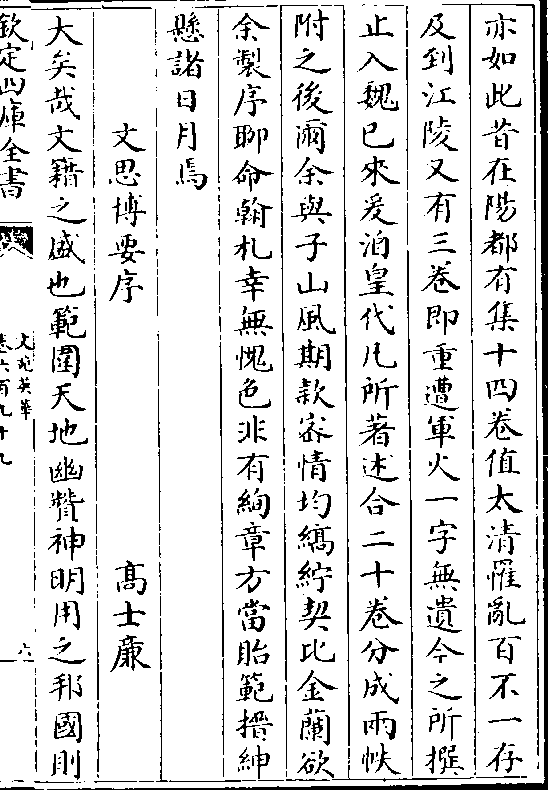 亦如此昔在陽都有集十四卷值太清罹亂百不一存
及到江陵又有三卷即重遭軍火一字無遺今之所撰
止入魏已來爰洎皇代凡所著述合二十卷分成兩帙
附之後爾余與子山風期款宻情均縞紵契比金蘭欲
余製序聊命翰札幸無愧色非有絢章方當貽範搢紳
懸諸日月焉
文思博要序 髙士廉
大矣哉文籍之盛也範圍天地幽贊神明用之邦國則
欽定四庫全書
文苑英華
卷六百九十九
六